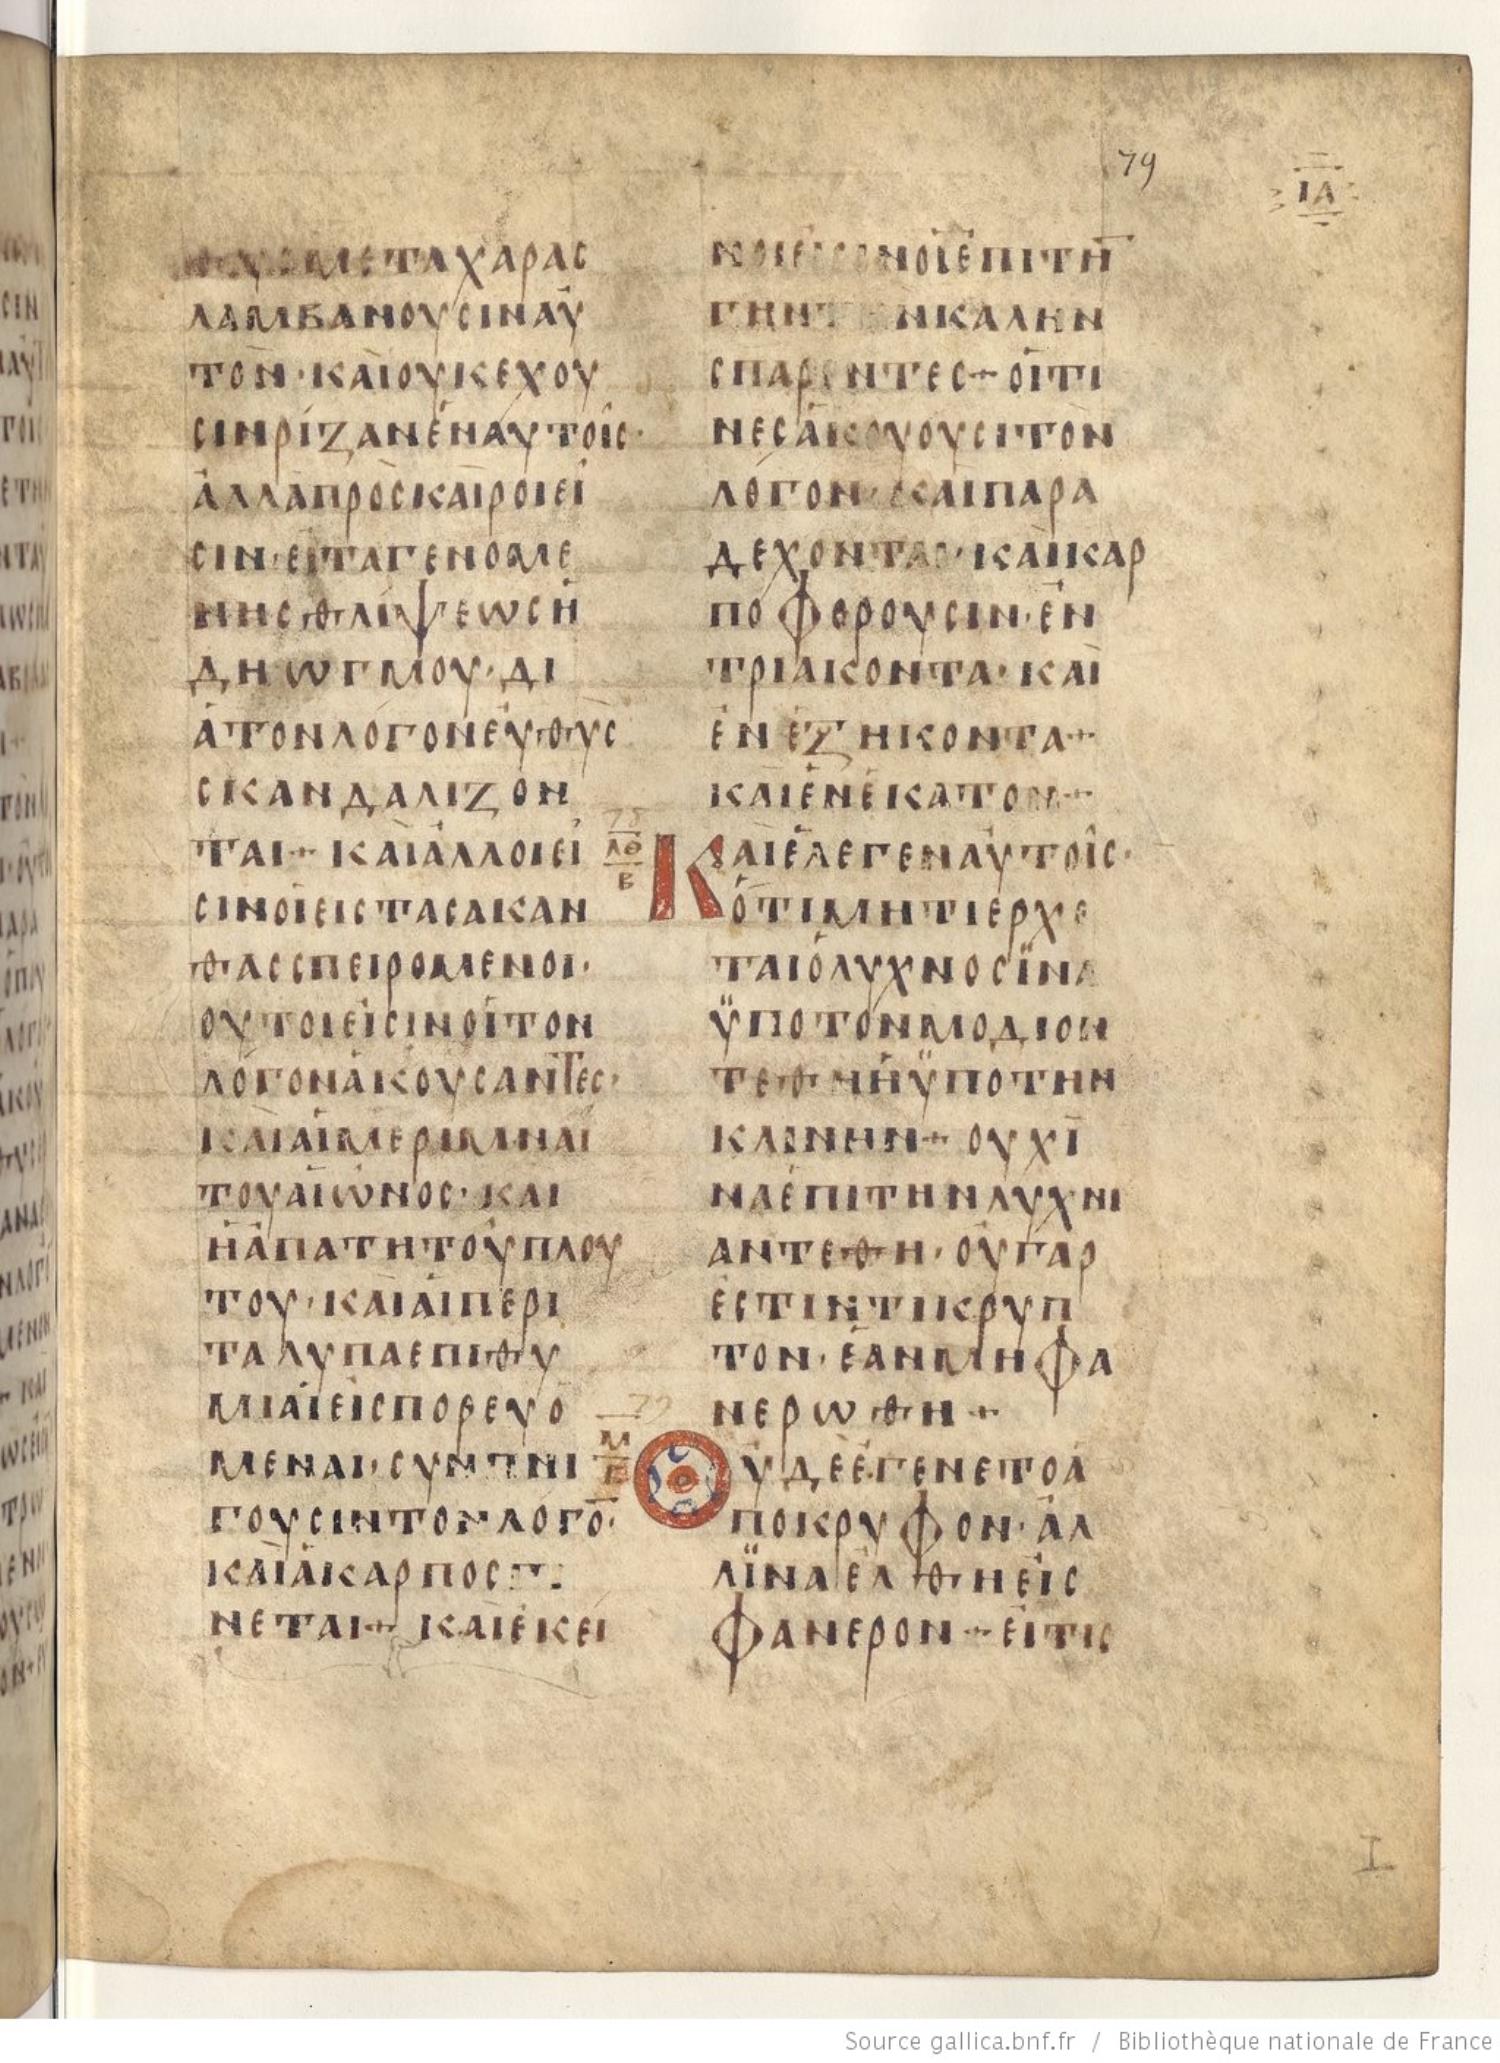 79
ΙΑ
ΜΕΤΑ ΧΑΡΑС
ΛΑΜΒΑΝΟΥСΙΝ ΑΥ
ΤΟΝ· ΚΑΙ ΟΥΚ ΕΧΟΥ
СΙΝ ΡΙΖΑΝ ΕΝ ΑΥΤΟΙС·
ΑΛΛΑ ΠΡΟСΚΑΙΡΟΙ ΕΙ
СΙΝ· ΕΙΤΑ ΓΕΝΟΜΕ
ΝΗС ΘΛΙΨΕΩС Η
ΔΗΩΓΜΟΥ· ΔΙ
Α ΤΟΝ ΛΟΓΟΝ ΕΥΘΥС
СΚΑΝΔΑΛΙΖΟΝ
ΤΑΙ+ ΚΑΙ ΑΛΛΟΙ ΕΙ
СΙΝ ΟΙ ΕΙС ΤΑС ΑΚΑΝ
ΘΑС СΠΕΙΡΟΜΕΝΟΙ·
ΟΥΤΟΙ ΕΙСΙΝ ΟΙ ΤΟΝ
ΛΟΓΟΝ ΑΚΟΥСΑΝΤΕС·
ΚΑΙ ΑΙ ΜΕΡΙΜΝΑΙ
ΤΟΥ ΑΙΩΝΟС· ΚΑΙ
Η ΑΠΑΤΗ ΤΟΥ ΠΛΟΥ
ΤΟΥ· ΚΑΙ ΑΙ ΠΕΡΙ
ΤΑ ΛΥΠΑ ΕΠΙΘΥ
ΜΙΑΙ ΕΙСΠΟΡΕΥΟ
ΜΕΝΑΙ· СΥΜΠΝΙ
ΓΟΥСΙΝ ΤΟΝ ΛΟΓΟ̅·
ΚΑΙ ΑΚΑΡΠΟС
ΝΕΤΑΙ+ ΚΑΙ ΕΚΕΙ
ΝΟΙ ΟΙ ΕΠΙ ΤΗ̅
ΓΗΝ ΤΗΝ ΚΑΛΗΝ
СΠΑΡΕΝΤΕС+ ΟΙΤΙ
ΝΕС ΑΚΟΥΟΥСΙ ΤΟΝ
ΛΟΓΟΝ· ΚΑΙ ΠΑΡΑ
ΔΕΧΟΝΤΑΙ· ΚΑΙ ΚΑΡ
ΠΟΦΟΡΟΥСΙΝ· ΕΝ
ΤΡΙΑΚΟΝΤΑ· ΚΑΙ
ΕΝ ΕΞΗΚΟΝΤΑ+
ΚΑΙ ΕΝ ΕΚΑΤΟΝ+
78
ΛΘ
Β
ΚΑΙ ΕΛΕΓΕΝ ΑΥΤΟΙС·
ΟΤΙ ΜΗΤΙ ΕΡΧΕ
ΤΑΙ Ο ΛΥΧΝΟС ΪΝΑ
ΫΠΟ ΤΟΝ ΜΟΔΙΟΝ
ΤΕΘΗ Η ΫΠΟ ΤΗΝ
ΚΛΙΝΗΝ+ ΟΥΧ Ϊ
ΝΑ ΕΠΙ ΤΗΝ ΛΥΧΝΙ
ΑΝ ΤΕΘΗ· ΟΥ ΓΑΡ
ΕСΤΙΝ ΤΙ ΚΡΥΠ
ΤΟΝ· ΕΑΝ ΜΗ ΦΑ
ΝΕΡΩΘΗ+
79
Μ
Β
ΟΥΔΕ ΕΓΕΝΕΤΟ Α
ΠΟΚΡΥΦΟΝ· ΑΛ
Λ ΪΝΑ ΕΛΘΗ ΕΙС
ΦΑΝΕΡΟΝ+ ΕΙ ΤΙС
I
Source gallica.bnf.fr / Bibliothèque nationale de France